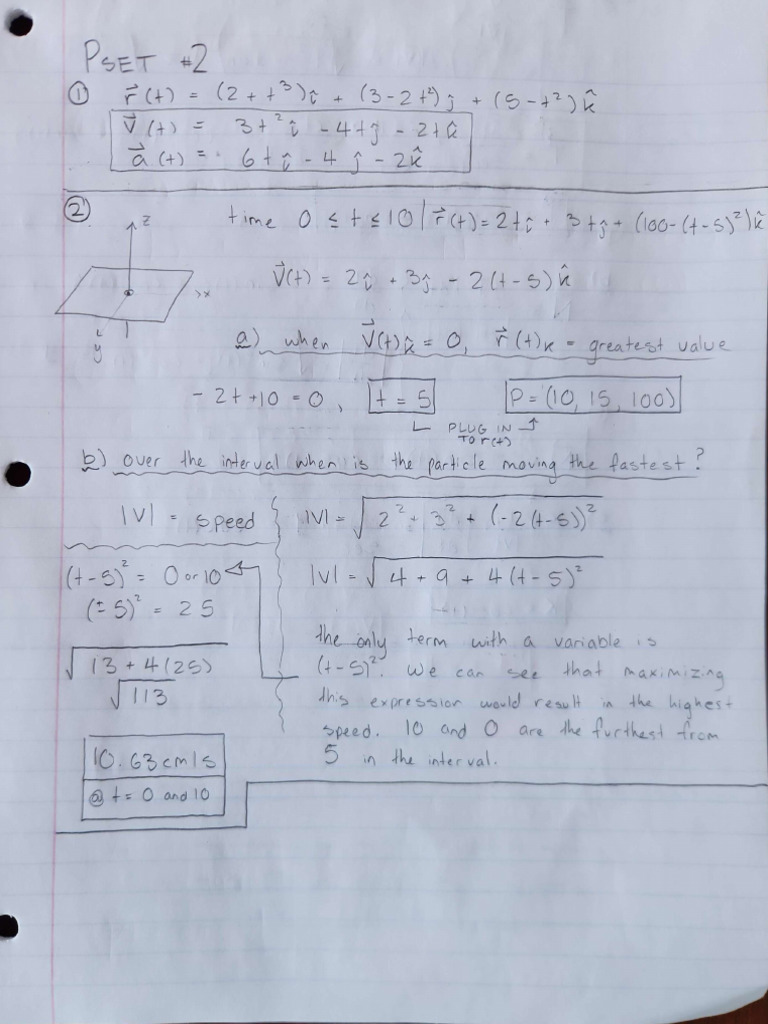 PSET #2
① r⃗(t) = (2 + t³)î + (3 - 2t²)ĵ + (5 - t²)k̂
v⃗(t) = 3t²î - 4tĵ - 2tk̂
a⃗(t) = 6tî - 4ĵ - 2k̂
② time 0 ≤ t ≤ 10 | r⃗(t) = 2tî + 3tĵ + (100 - (t-5)²)k̂
z
x
y
v⃗(t) = 2î + 3ĵ - 2(t-5)k̂
a) when v⃗(t)k̂ = 0, r⃗(t)k = greatest value
-2t + 10 = 0, t = 5 P = (10, 15, 100)
PLUG IN
TO r(t)
b) over the interval when is the particle moving the fastest?
|V| = speed
(t-5)² = 0 or 10
(± 5)² = 25
√13 + 4(25)
√113
10.63 cm/s
@ t = 0 and 10
|V| = √2² + 3² + (-2(t-5))²
|V| = √4 + 9 + 4(t-5)²
the only term with a variable is
(t-5)². We can see that maximizing
this expression would result in the highest
speed. 10 and 0 are the furthest from
5 in the interval.